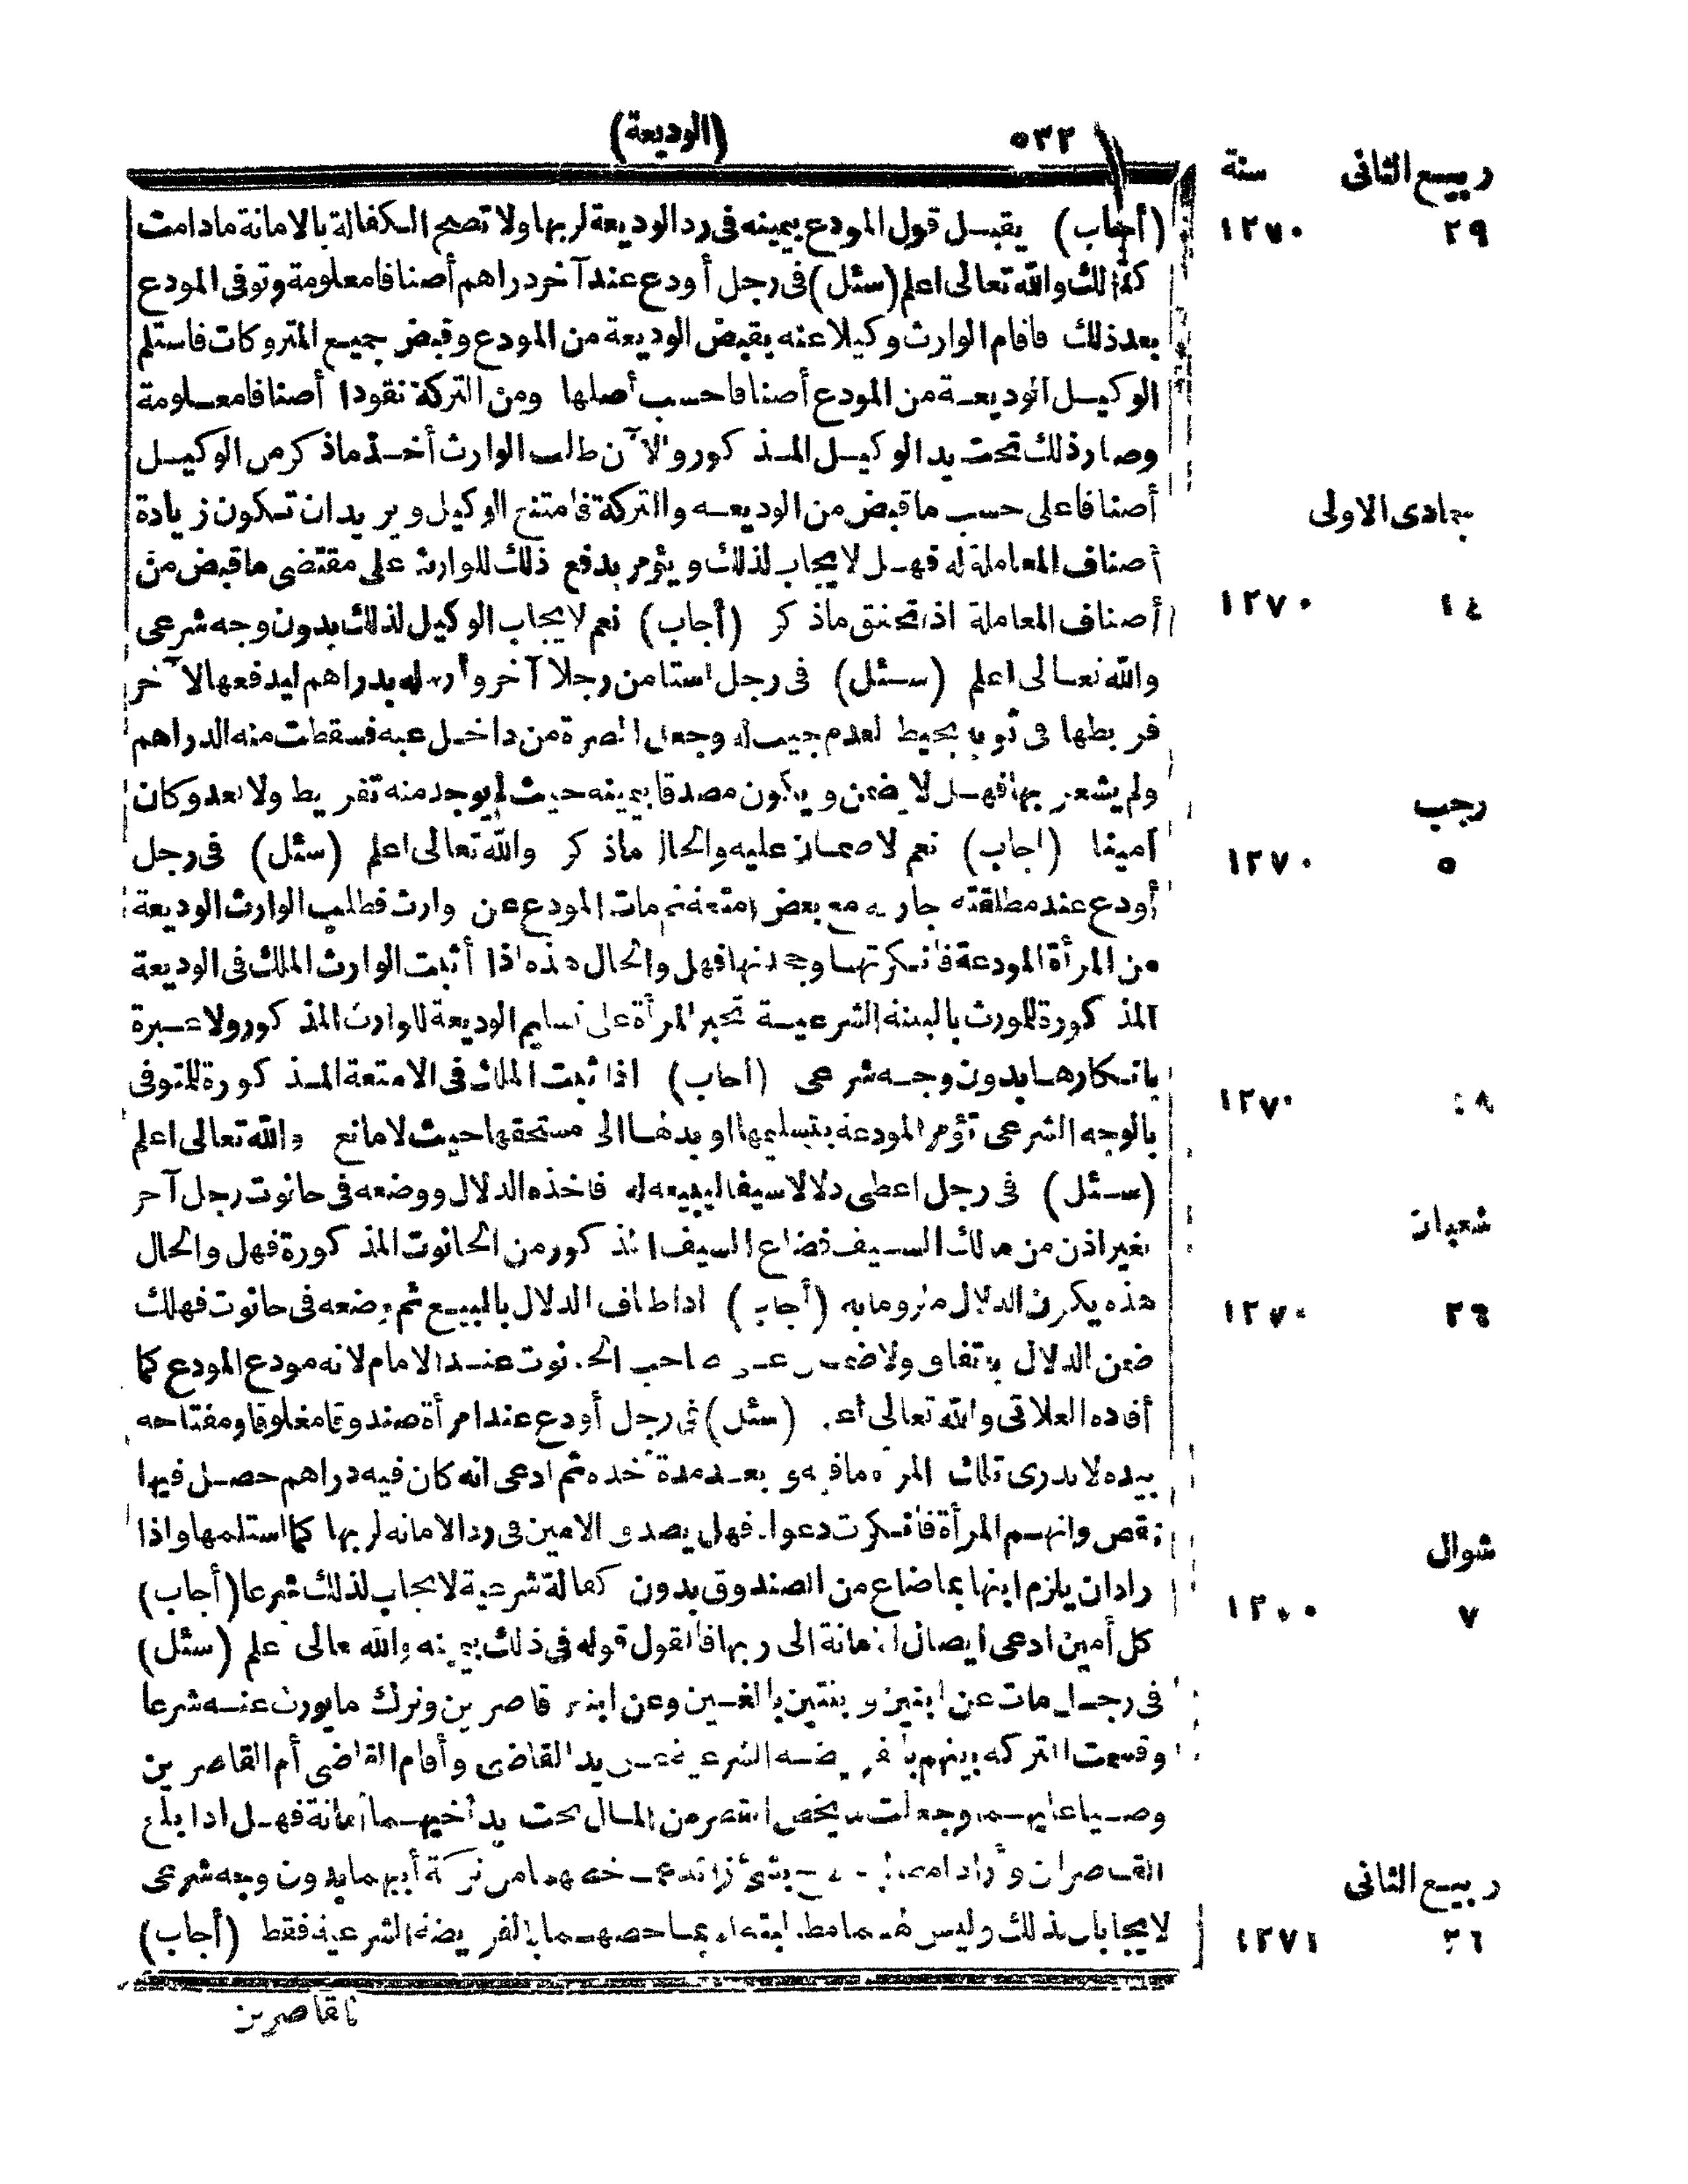 ٥٣٢ (الوديعة)
ربيع الثانى سنة
٢٩ ١٢٧٠
(أجاب) يقبل قول المودع بيمينه فى رد الوديعة لربها ولا تصح الكفالة بالامانة مادامت
كذلك والله تعالى اعلم (سئل) فى رجل أودع عند آخر دراهم أصنافا معلومة وتوفى المودع
بعد ذلك فاقام الوارث وكيلا عنه بقبض الوديعة من المودع وقبض جميع المتروكات فاستلم
الوكيل الوديعة من المودع أصنافا حسب أصلها ومن التركة نقودا أصنافا معلومة
وصار ذلك تحت يد الوكيل المذكور والآن طلب الوارث أخذ ماذكر من الوكيل
أصنافا على حسب ما قبض من الوديعه والتركة فامتنع الوكيل ويريد ان تكون زيادة
جمادى الاولى
أصناف المعاملة له فهل لا يجاب لذلك ويؤمر بدفع ذلك للوارث على مقتضى ما قبض من
أصناف المعاملة اذا تحقق ماذكر (أجاب) نعم لا يجاب الوكيل لذلك بدون وجه شرعى
١٤ ١٢٧٠
والله تعالى اعلم (سئل) فى رجل استامن رجلا آخر وأرسله بدراهم ليدفعها لآخر
فربطها فى ثوبه بخيط لعدم جيب له وجعل الصرة من داخل عبه فسقطت منه الدراهم
ولم يشعر بها فهل لا يضمن ويكون مصدقا بيمينه حيث لم يوجد منه تفريط ولا تعد وكان
رجب
أمينا (اجاب) نعم لا ضمان عليه والحال ماذكر والله تعالى اعلم (سئل) فى رجل
٥ ١٢٧٠
أودع عند مطلقته جاريه مع بعض امتعة ثم مات المودع عن وارث فطلب الوارث الوديعة
من المرأة المودعة فانكرتها وجحدتها فهل والحال هذه اذا أثبت الوارث الملك فى الوديعة
المذكورة للمورث بالبينة الشرعية تجبر المرأة على تسليم الوديعة للوارث المذكور ولا عبرة
بانكارها بدون وجه شرعى (اجاب) اذا ثبت الملك فى الامتعة المذكورة للمتوفى
١٢٧٠
بالوجه الشرعى تؤمر المودعة بتسليمها او بدلها الى مستحقها حيث لا مانع والله تعالى اعلم
(سئل) فى رجل اعطى دلالا سيفا ليبيعه له فاخذه الدلال ووضعه فى حانوت رجل آخر
شعبان
بغير اذن من مالك السيف فضاع السيف المذكور من الحانوت المذكورة فهل والحال
هذه يكون الدلال ملزوما به (أجاب) اذا طاف الدلال بالمبيع ثم وضعه فى حانوت فهلك
٢٦ ١٢٧٠
ضمن الدلال باتفاق ولا ضمان على صاحب الحانوت عند الامام لانه مودع المودع كما
أفاده العلائى والله تعالى أعلم (سئل) فى رجل أودع عند امرأة صندوقا مغلوقا ومفتاحه
بيده لا تدرى تلك المرأة ما فيه وبعد مدة أخذه ثم ادعى انه كان فيه دراهم حصل فيها
نقص واتهم المرأة فانكرت دعواه فهل يصدق الامين فى رد الامانه لربها كما استلمها واذا
شوال
راد ان يلزم ابنها بما ضاع من الصندوق بدون كفالة شرعية لا يجاب لذلك شرعا (أجاب)
٧
كل أمين ادعى ايصال الامانة الى ربها فالقول قوله فى ذلك بيمينه والله تعالى اعلم (سئل)
فى رجل مات عن ابنين وبنتين بالغين وعن ابنين قاصرين وترك ما يورث عنه شرعا
وقسمت التركه بينهم بالفريضه الشرعية على يد القاضى وأقام القاضى أم القاصرين
وصيا عليهما وجعلت ما يخص القصر من المال تحت يد أخيهما أمانة فهل اذا بلغ
القاصران وأرادا بشئ زائد عما خصهما من تركة أبيهما بدون وجه شرعى
ربيع الثانى
لا يجابان لذلك وليس لهما مطالبته الا بما خصهما بالفريضة الشرعية فقط (أجاب)
٢٦ ١٢٧١
القاصرين